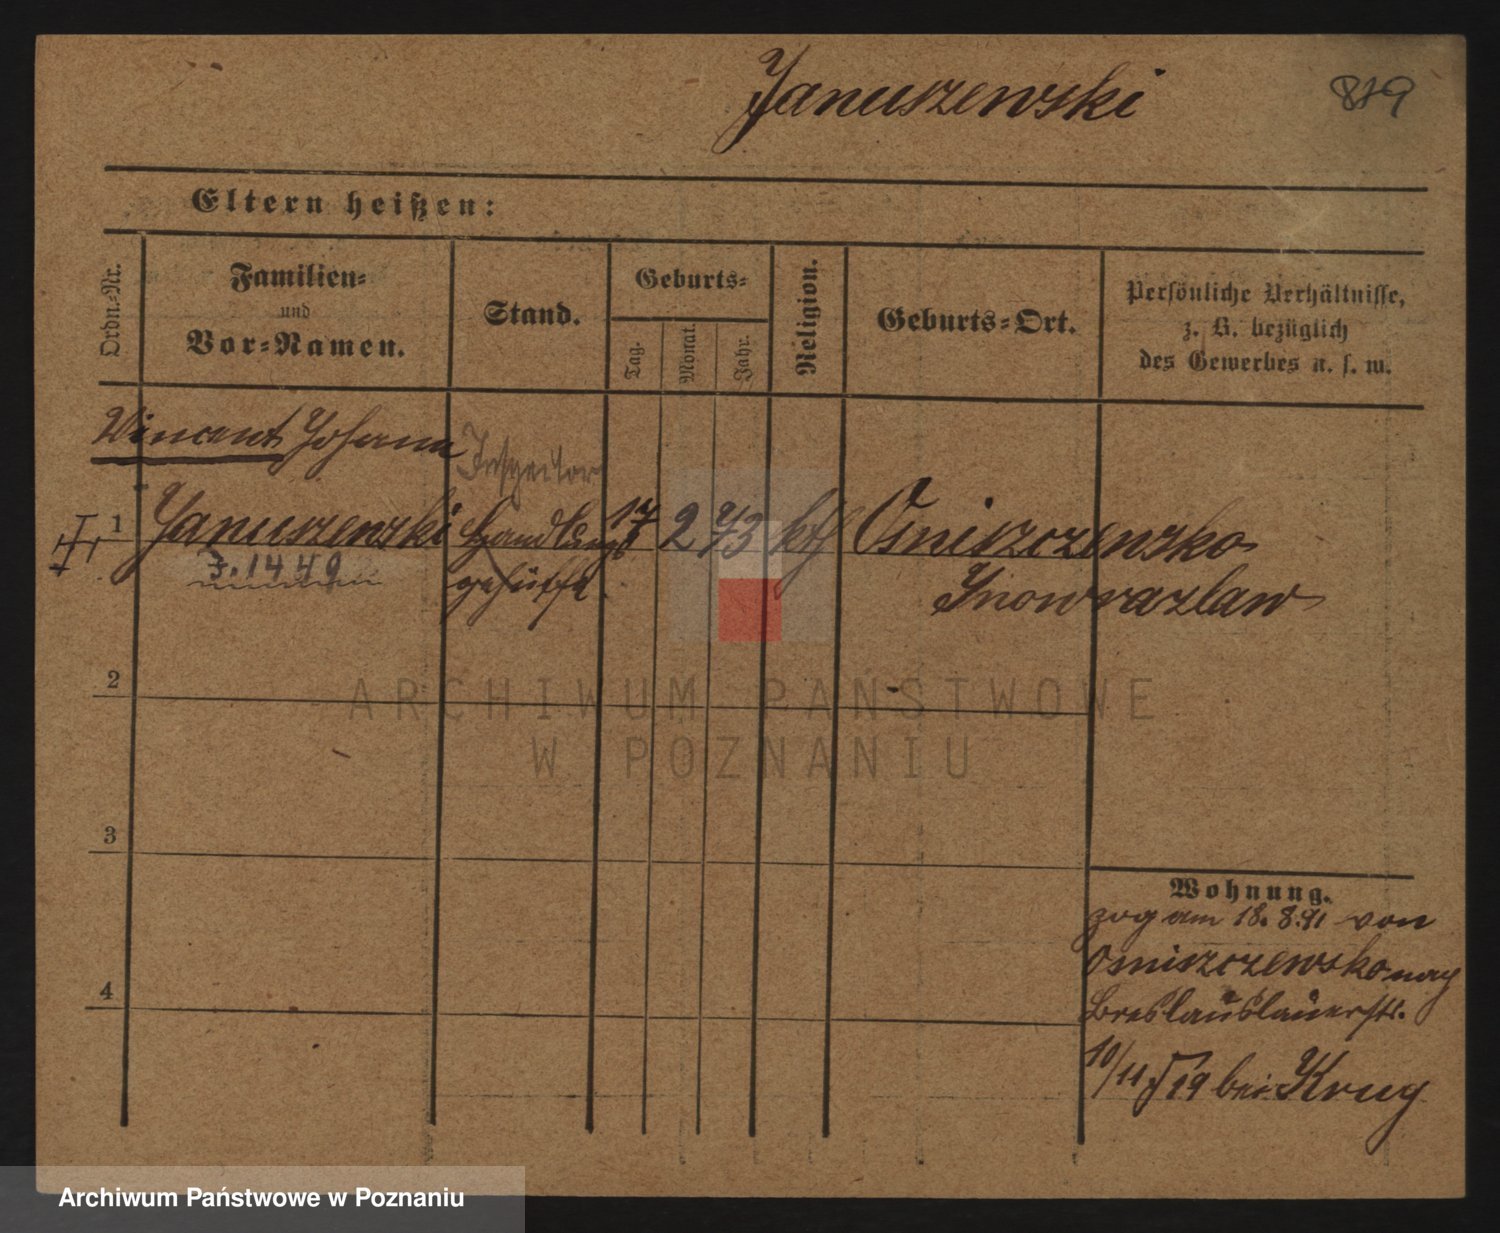 Januszewski
819
Eltern heißen:
Ordn.=Nr.
Familien=
und
Vor=Namen.
Stand.
Geburts=
Tag.
Monat.
Jahr.
Religion.
Geburts=Ort.
Persönliche Verhältnisse,
z. B. bezüglich
des Gewerbes u. s. w.
Vincent Johann
Inspektor
1 Januszewski Handlungs 17 2 73 kth Osniszczewsko
gehülfe.
J. 1449
Inowrazlaw
2
3
4
Wohnung.
zog am 18. 8. 91 von
Osniszczewsko nach
Breslauerstr.
10/11 19 bei Krug
ARCHIWUM PAŃSTWOWE
W POZNANIU
Archiwum Państwowe w Poznaniu